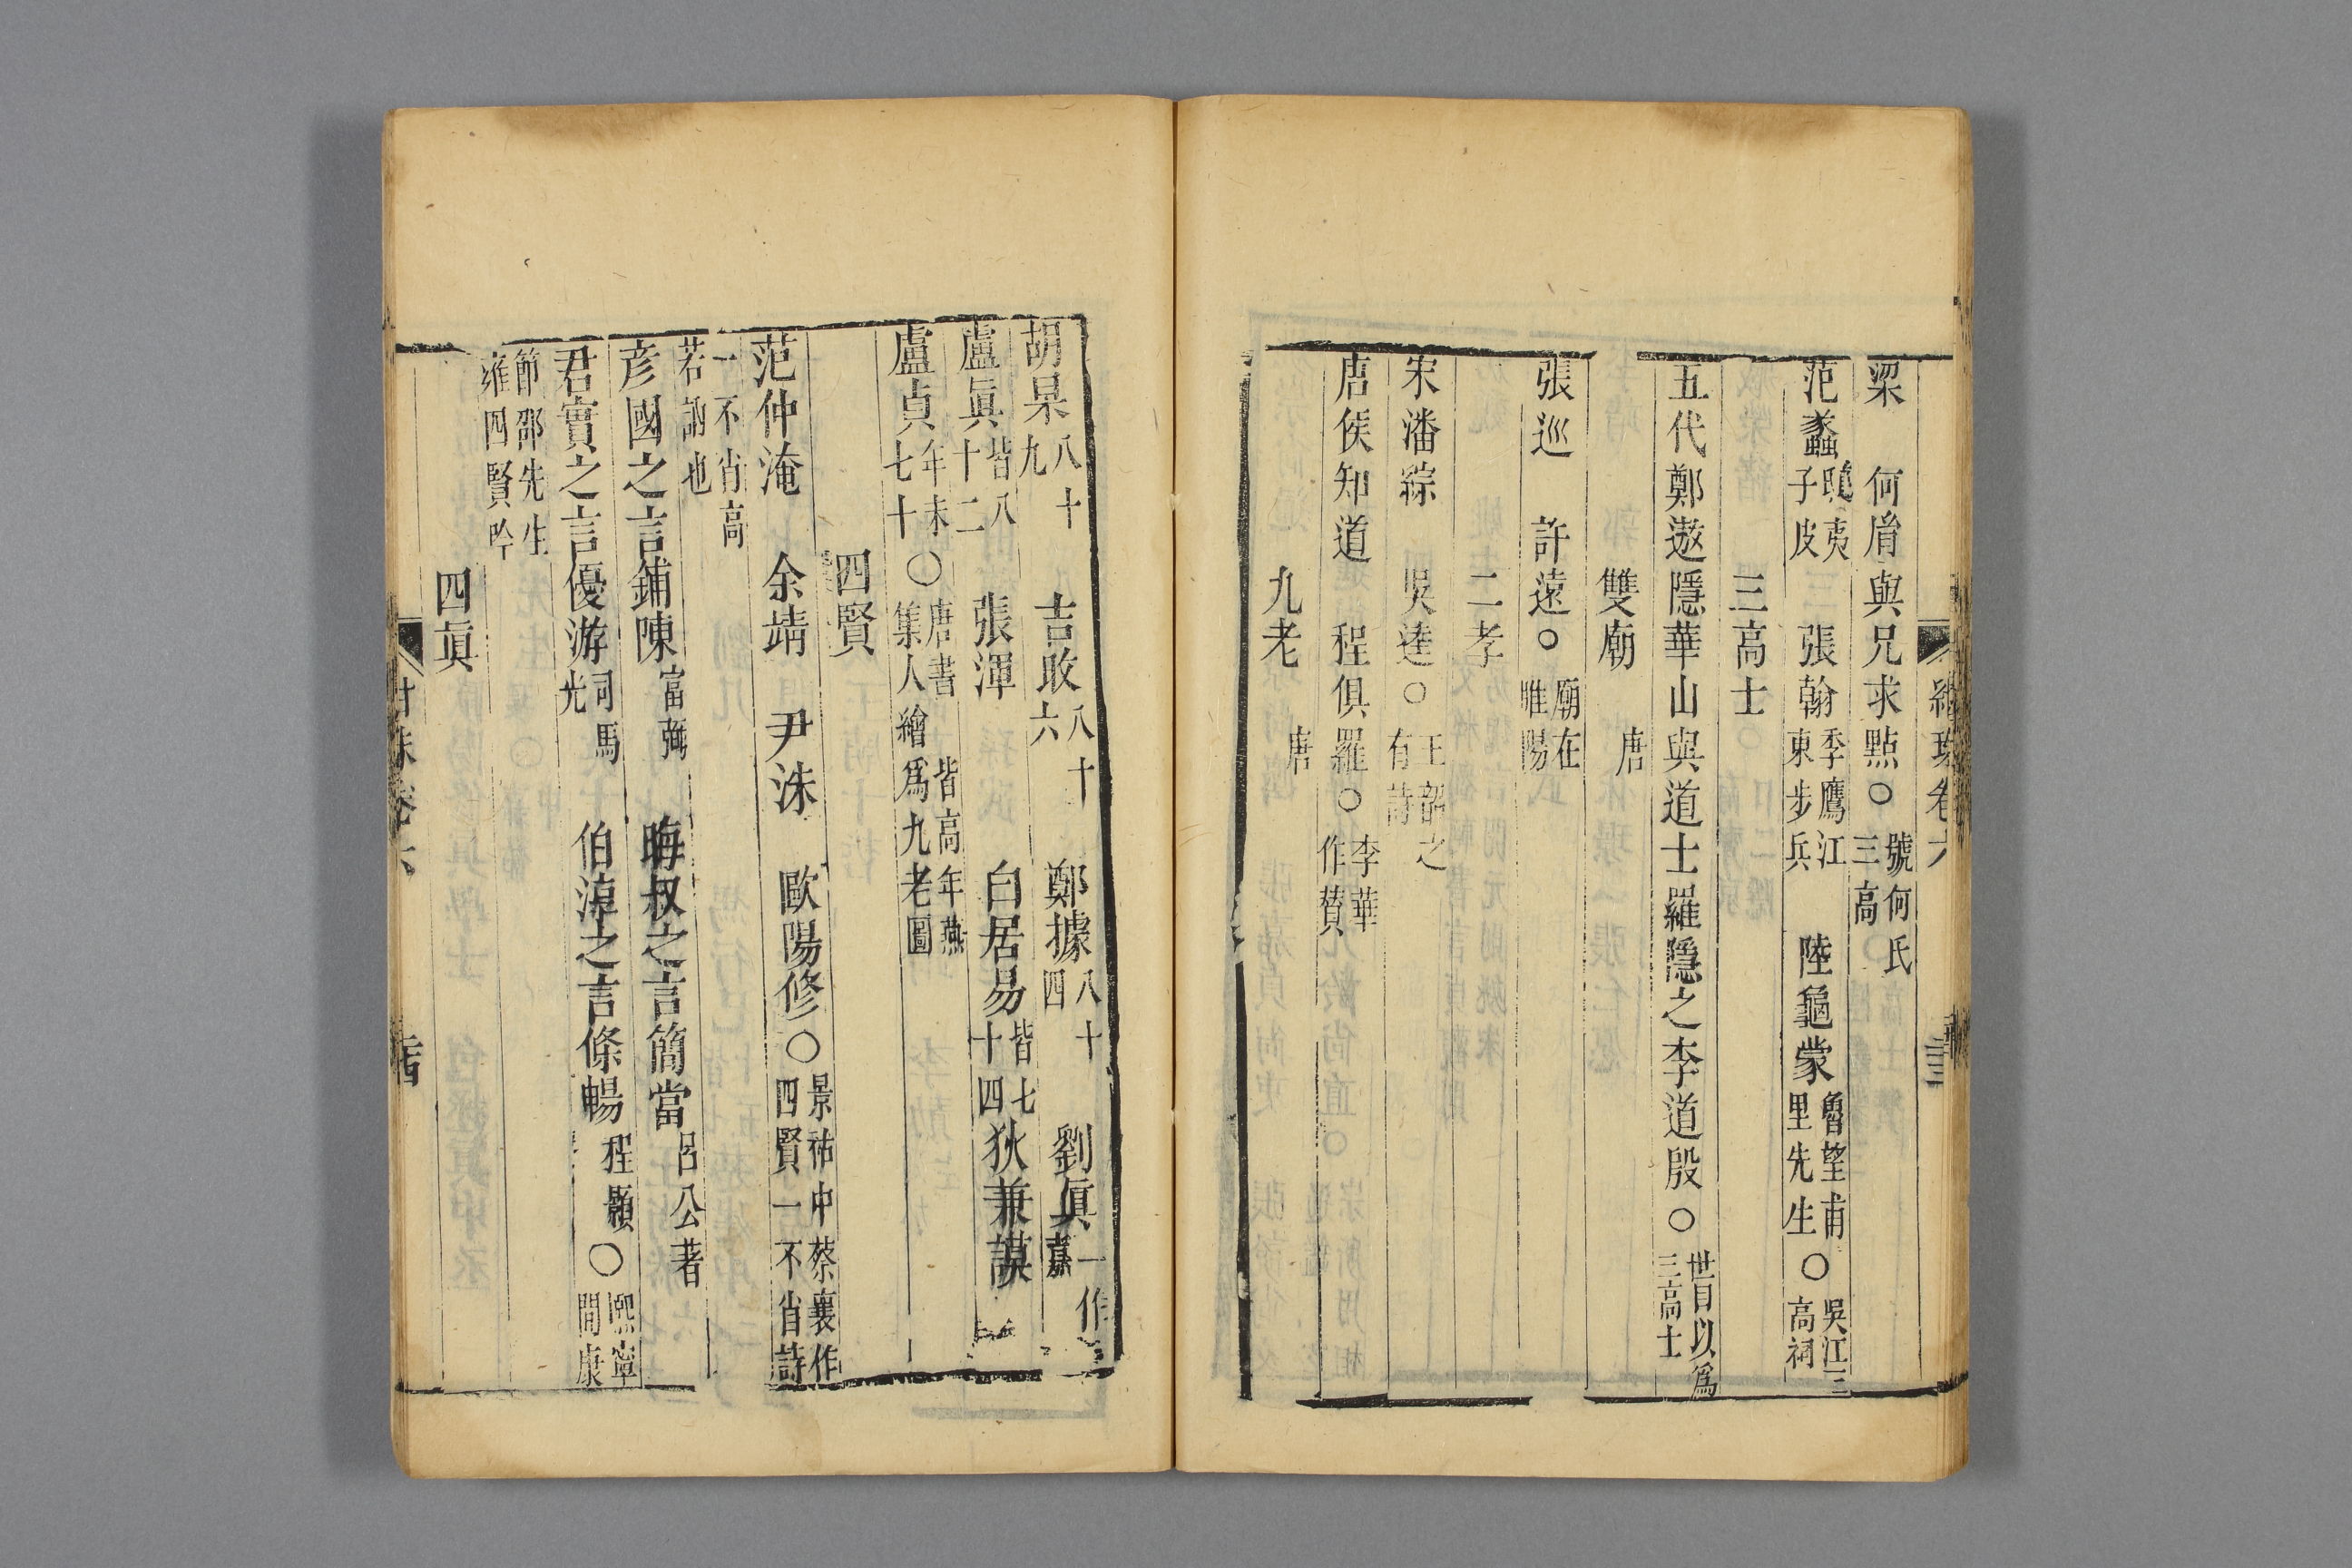 梁　何胤與兄求點○號何氏三高
范蠡鴟夷子皮　張翰季鷹江東步兵　陸龜蒙魯望甫里先生○吳江三高祠
三高士
五代鄭遨隱華山與道士羅隱之李道殷○世目以爲三高士
雙廟　唐
張巡　許遠○廟在睢陽
二孝
宋潘綜　吳逵○王韶之有詩
唐侯知道　程俱羅○李華作贊
九老　唐
胡杲八十九　吉旼八十六　鄭據八十四　劉眞一作
盧眞皆八十二　張渾　白居易皆七十四　狄兼謨
盧貞年未七十○唐書皆高年燕集人繪爲九老圖
四賢
范仲淹　余靖　尹洙　歐陽修○景祐中蔡襄作四賢一不肖詩
一不肖高若訥也
彥國之言鋪陳富弼　晦叔之言簡當呂公著
君實之言優游司馬光　伯淳之言條暢程顥○熙寧間康
節邵先生雍四賢吟
四眞